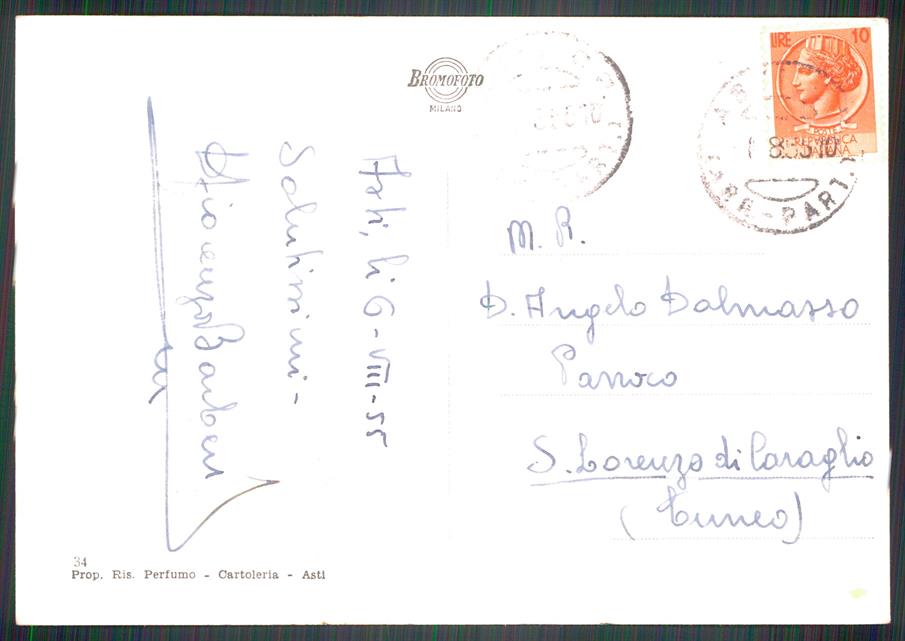 BROMOFOTO
MILANO
LIRE 10
POSTE
REPVBBLICA
ITALIANA
ARR-PART.
Asti, li 6-VIII-55
Salutissimi-
M. R.
D. Angelo Dalmasso
Parroco
S. Lorenzo di Caraglio
(Cuneo)
34
Prop. Ris. Perfumo - Cartoleria - Asti